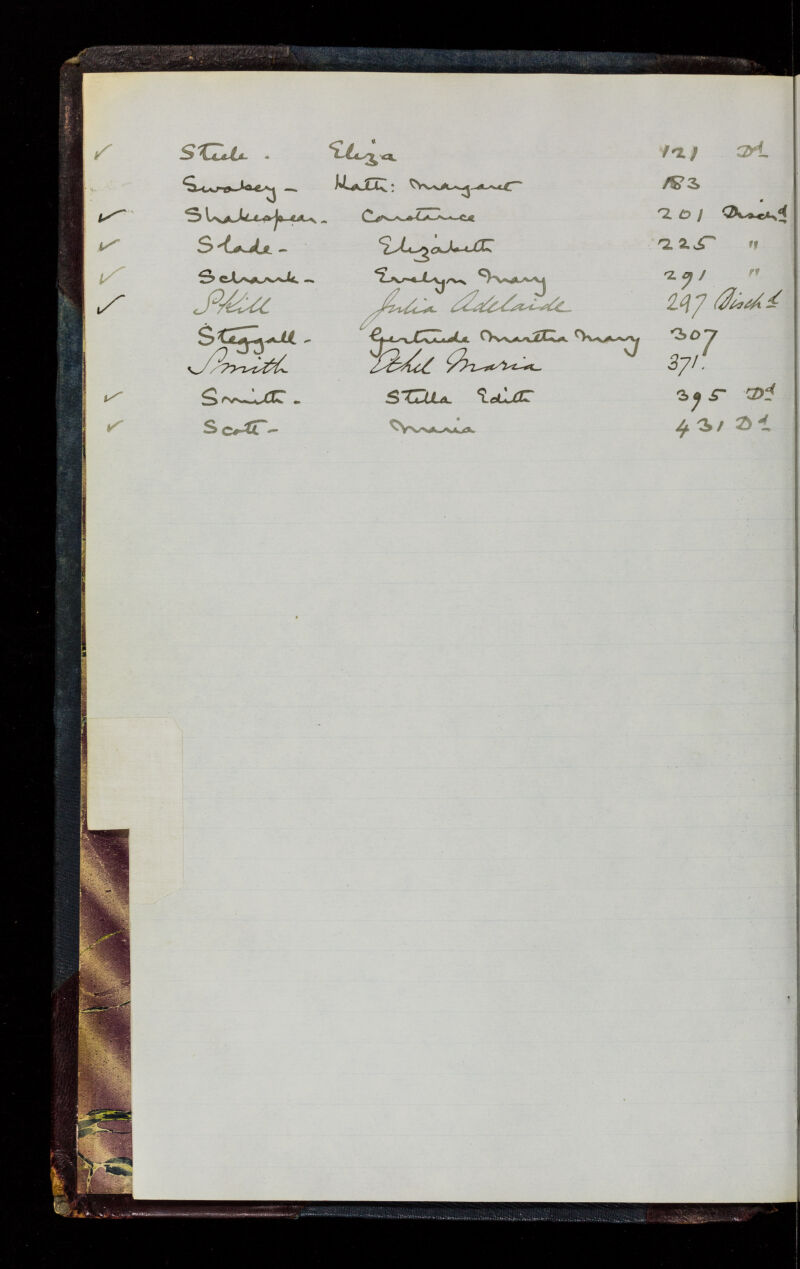 ✓ Steele. Eliza 121 Dd
Swabey - Kath: Margaret 183
✓ Shakespear. Constance 201 Dischd
✓ Slade - Elizabeth 225 "
✓ Schank - Evelyn Mary 291 "
✓ Skill Julia Adelaide 297 Dischd
Steggall - Gertrude Martha Mary 307
Smith Ethel Maria 371.
✓ Smith - Stella Edith 395 Dd
✓ Scott - Maria 431 Dd